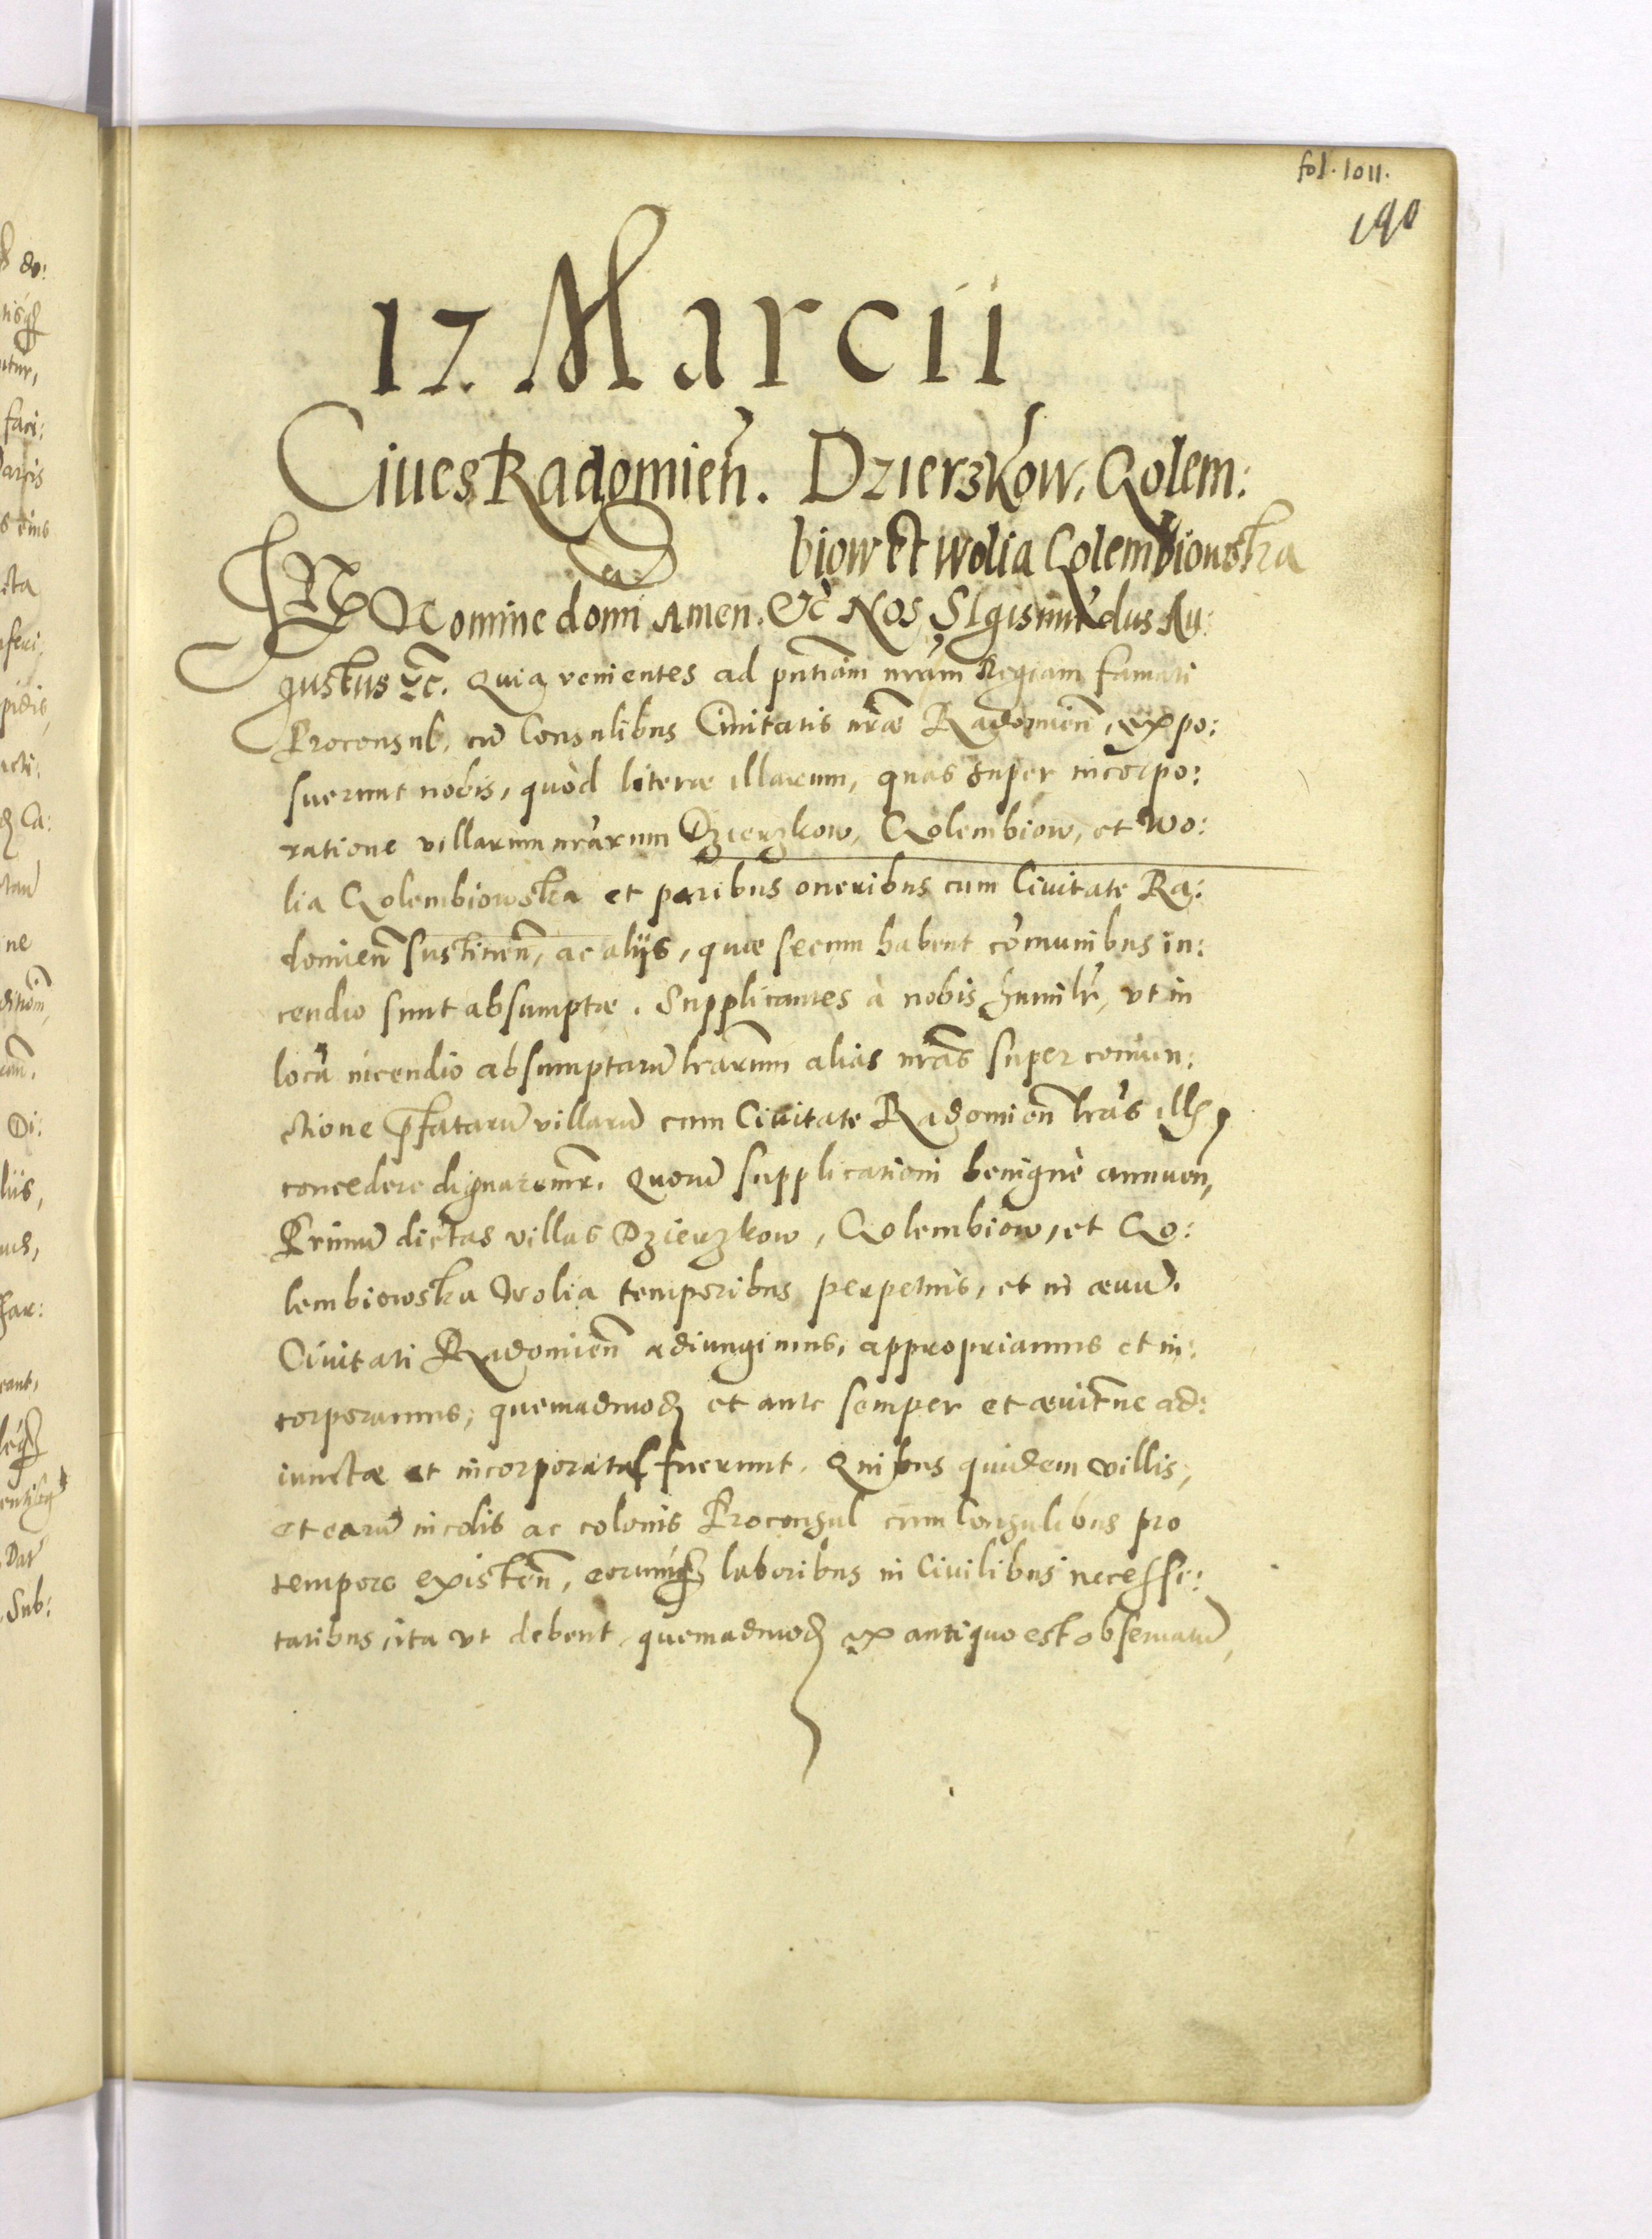 fol. 1011.
190
17. Marcii
Ciues Radomieñ. Dzierzkow, Golem:
biow et Wolia Golembiowska
IN Nomine domi Amen. &c̃ Nos SIgismũdus Au:
gustus &c̃. Quia venientes ad pntiam nram Regiam famati
Proconsul, cũ Consulibus Ciuitatis nræ Radomieñ, expo:
suerunt nobis, quòd literæ illarum, quas super incorpo:
ratione villarum nrarum Dzierzkow, Golembiow, et Wo:
lia Golembiowska et paribus oneribus cum Ciuitate Ra:
domieñ sustineñ, ac alijs, quæ secum habent cõmunibus in:
cendio sunt absumptæ. Supplicantes à nobis humilr, vt in
locũ incendio absumptarũ lrarum alias nras super coniun:
ctione p̃fatarũ villarũ cum Ciuitate Radomieñ lras illis
concedere dignaremr. Quorũ supplicationi benignè annuen,
Primũ dictas villas Dzierzkow, Golembiow, et Go:
lembiowska Wolia temporibus perpetuis, et in æuũ.
Ciuitati Radomieñ adiungimus, appropriamus et in:
corporamus; quemadmod et ante semper et æuiterne ad:
iunctæ et incorporatæ fuerunt. Quibus quidem villis,
et earũ incolis ac colonis Proconsul cum Consulibus pro
tempore existeñ, eorumq laboribus in Ciuilibus necesse:
tatibus, ita vt debent, quemadmod ex antiquo est obseruatũ,